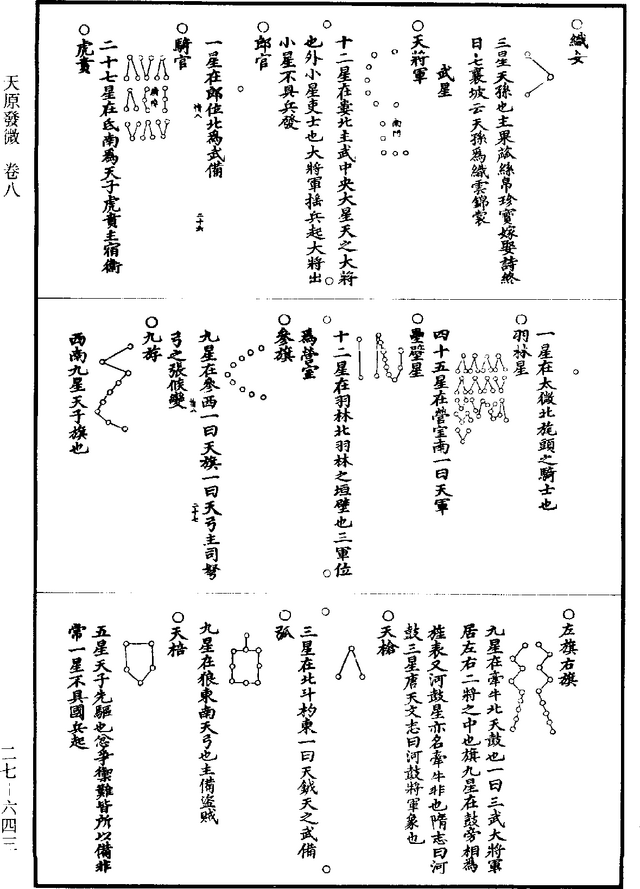 天原發微 卷八
○織女
三星天孫也主果蓏絲帛珍寶嫁娶詩終
日七襄坡云天孫為織雲錦裳
武星
○天將軍
南門
十二星在婁北主武中央大星天之大將
也外小星吏士也大將軍搖兵起大將出
小星不具兵發
○郎官
一星在郎位北為武備
○騎官
二十七星在氐南為天子虎賁主宿衛
○虎賁
一星在太微北旄頭之騎士也
○羽林星
四十五星在營室南一曰天軍
○壘壁星
十二星在羽林北羽林之垣壁也三軍位
為營室
○參旗
九星在參西一曰天旗一曰天弓主司弩
弓之張候變
○九斿
西南九星天子旗也
○左旗右旗
九星在牽牛北天鼓也一曰三武大將軍
居左右二將之中也旗九星在鼓旁相為
旌表又河鼓星亦名牽牛非也隋志曰河
鼓三星唐天文志曰河鼓將軍象也
○天槍
三星在北斗杓東一曰天鉞天之武備
○弧
九星在狼東南天弓也主備盜賊
○天棓
五星天子先驅也忿爭禦難皆所以備非
常一星不具國兵起
二七－六四三